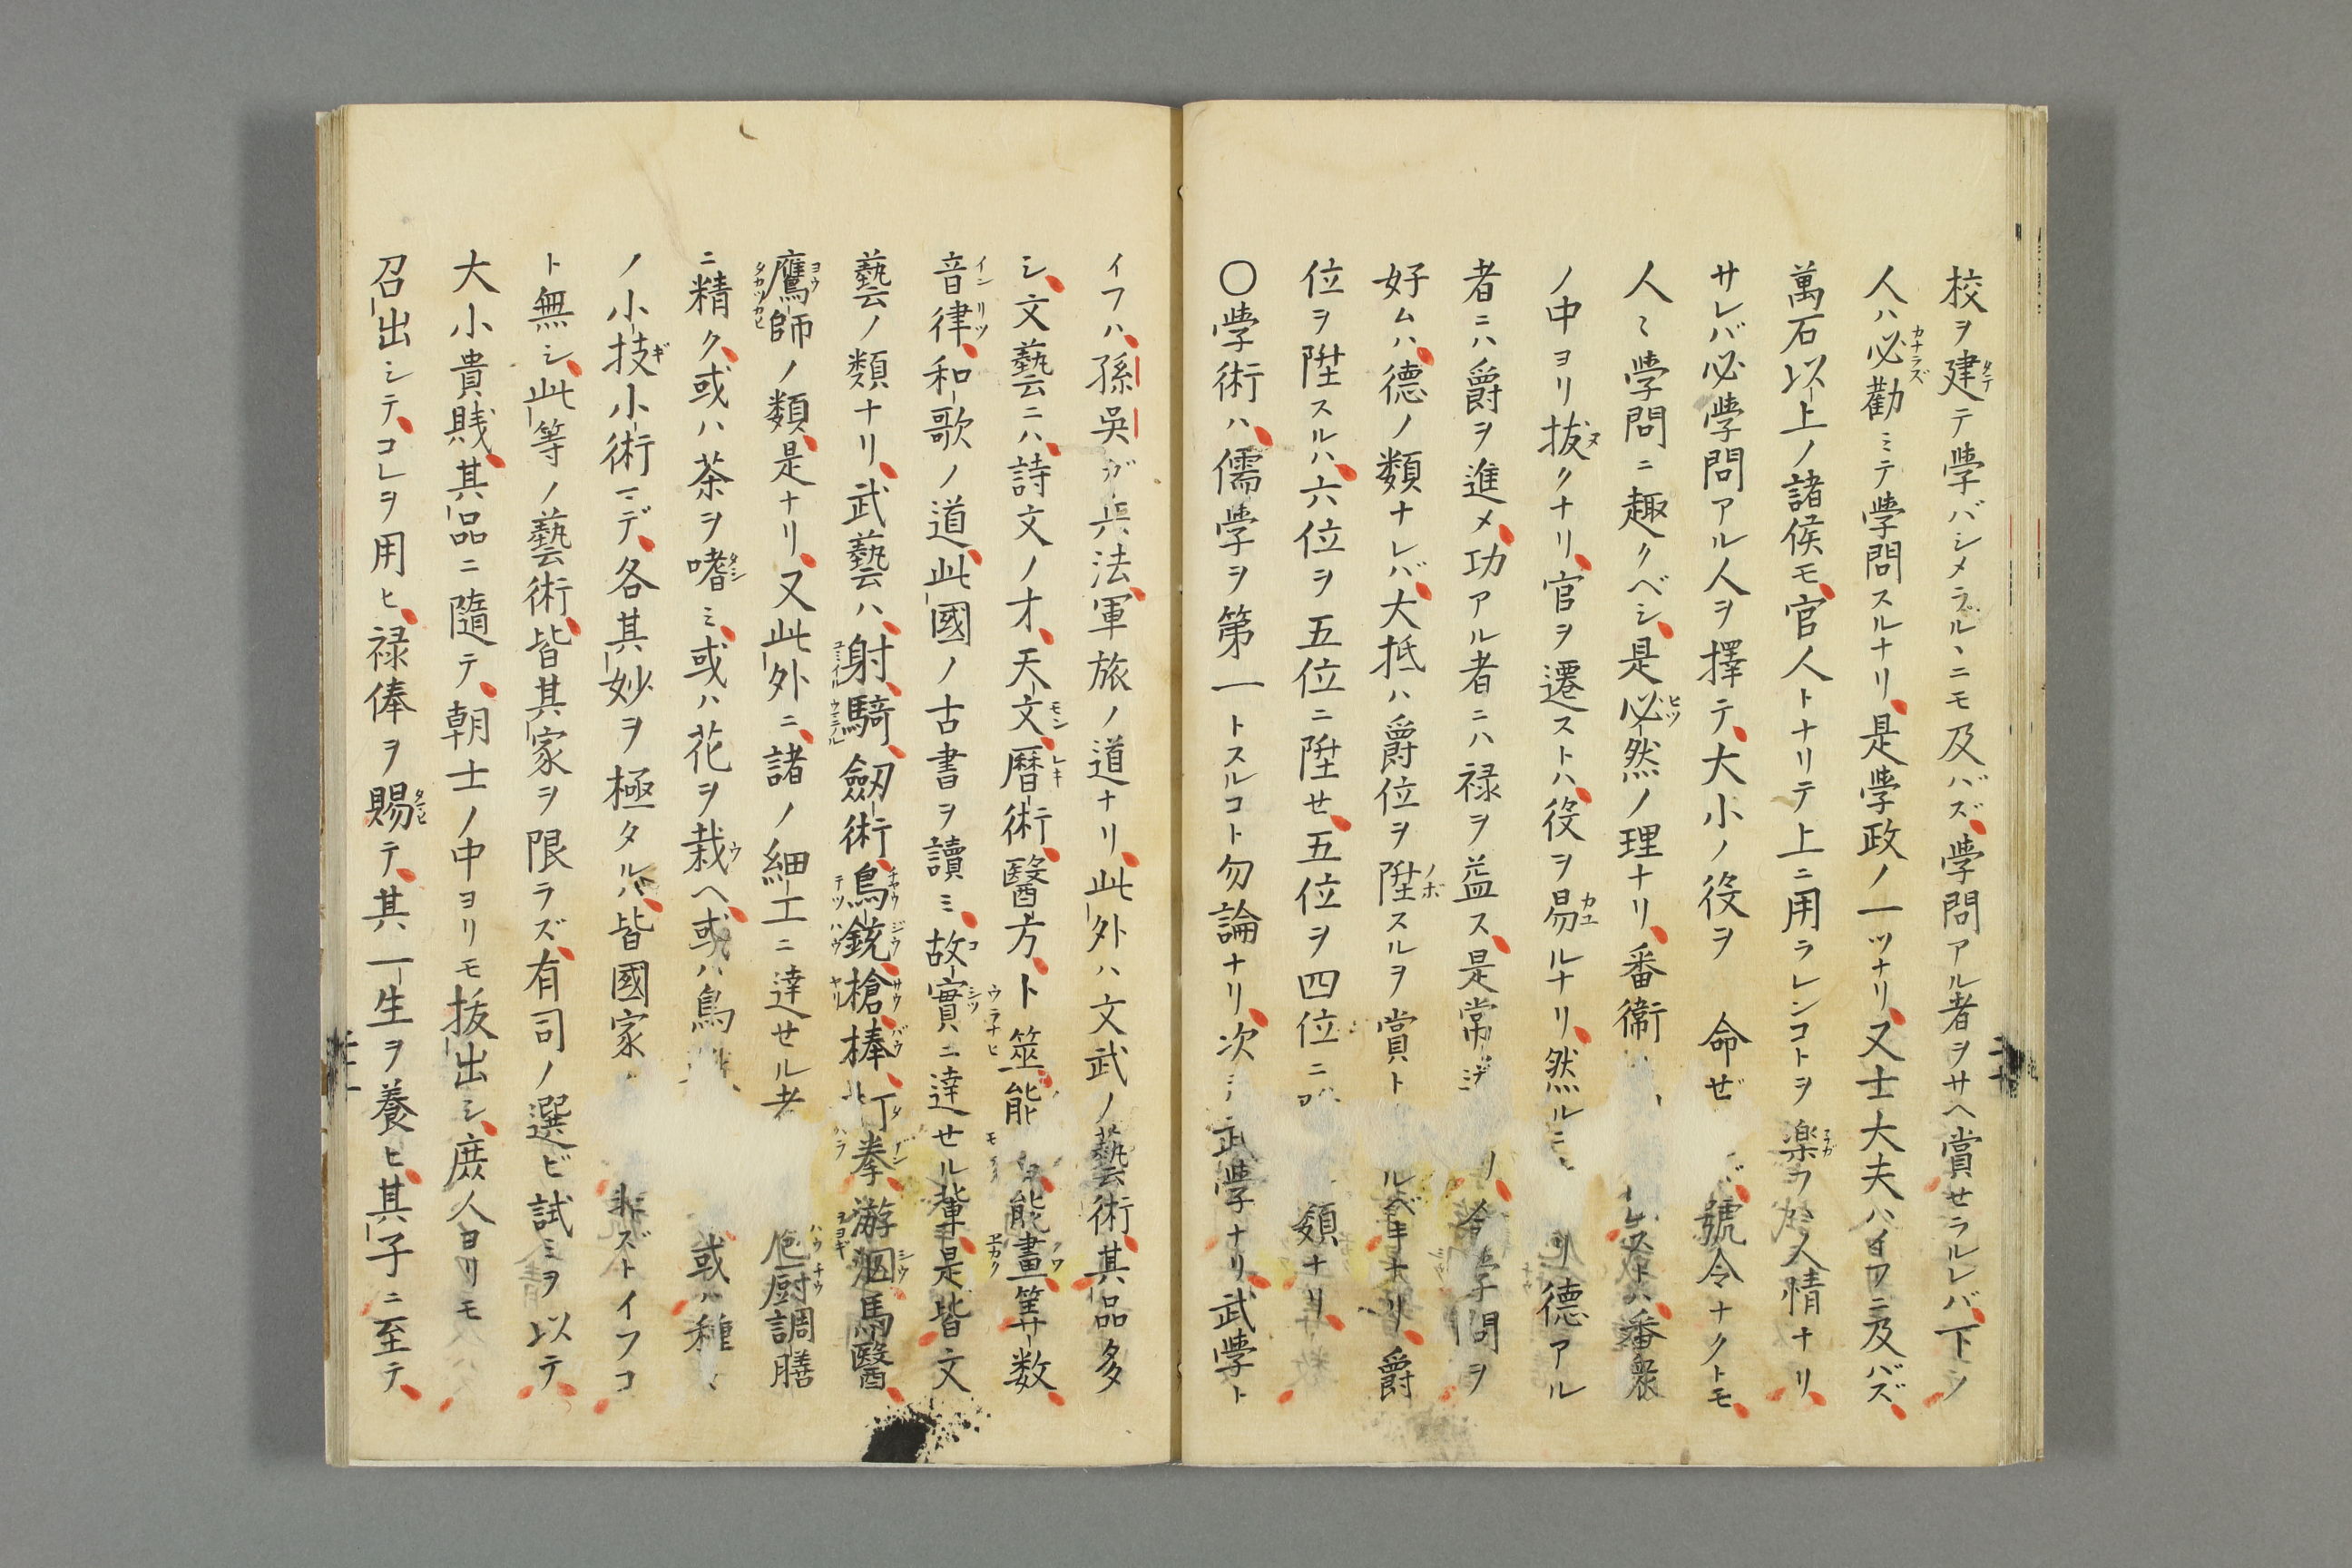 校ヲ建テ學バシメラルヽニモ及バズ學問アル者ヲサヘ賞セラルレバ下ジ
人ハ必勸ミテ學問スルナリ是學政ノ一ツナリ又士大夫ハイフニ及バズ
萬石以上ノ諸侯モ官人トナリテ上ニ用ラレンコトヲ樂フハ人情ナリ
サレバ必學問アル人ヲ擇テ大小ノ役ヲ 命ゼ バ號令ナクトモ
人〻學問ニ趣クベシ是必然ノ理ナリ番衞 ストハ番衆
ノ中ヨリ抜クナリ官ヲ遷ストハ役ヲ易ルナリ然ルニ リ德アル
者ニハ爵ヲ進メ功アル者ニハ禄ヲ益ス是常 ノ 學問ヲ
好ムハ德ノ類ナレバ大抵ハ爵位ヲ陞スルヲ賞ト ルベキナリ爵
位ヲ陞スルハ六位ヲ五位ニ陞セ五位ヲ四位ニ 類ナリ
〇學術ハ儒學ヲ第一トスルコト勿論ナリ次ニハ武學ナリ武學ト
イフハ孫吳ガ兵法軍旅ノ道ナリ此外ハ文武ノ藝術其品多
シ文藝ニハ詩文ノ才天文曆術醫方卜筮能 能畫筭数
音律和歌ノ道此國ノ古書ヲ讀ミ故實ニ達セル輩是皆文
藝ノ類ナリ武藝ハ射騎劔術鳥銃槍棒 打拳游泅馬醫
鷹師ノ類是ナリ又此外ニ諸ノ細工ニ達セル者 庖厨調膳
ニ精ク或ハ茶ヲ嗜ミ或ハ花ヲ栽ヘ或ハ鳥 或ハ種〻
ノ小技小術マデ各其妙ヲ極タルハ皆國家 非ズトイフコ
ト無シ此等ノ藝術皆其家ヲ限ラズ有司ノ選ビ試ミヲ以テ
大小貴賎其品ニ隨テ朝士ノ中ヨリモ抜出シ庶人ヨリモ
召出シテコレヲ用ヒ禄俸ヲ賜テ其一生ヲ養ヒ其子ニ至テ